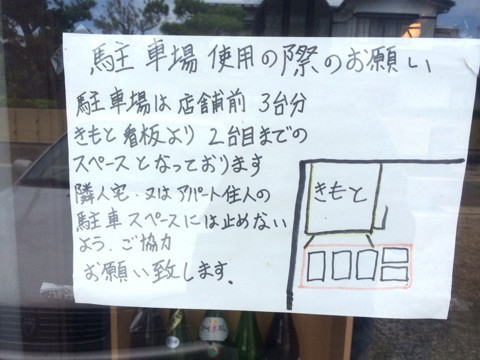 駐車場使用の際のお願い
駐車場は店舗前3台分
きもと看板より2台目までの
スペースとなっております
隣人宅・又はアパート住人の
駐車スペースには止めない
よう、ご協力
お願い致します。
きもと